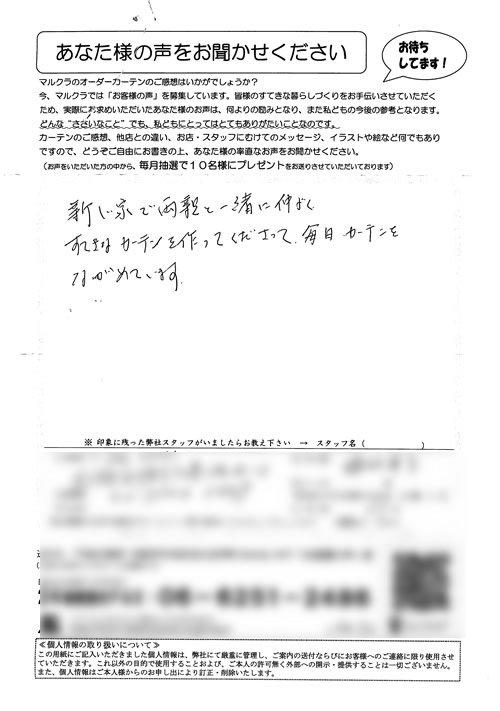 あなた様の声をお聞かせください
お待ち
してます！
マルクラのオーダーカーテンのご感想はいかがでしょうか？
今、マルクラでは「お客様の声」を募集しています。皆様のすてきな暮らしづくりをお手伝いさせていただく
ため、実際にお求めいただいたあなた様のお声は、何よりの励みとなり、また私どもの今後の参考となります。
どんな“ささいなこと”でも、私どもにとってはとてもありがたいことなのです。
カーテンのご感想、他店との違い、お店・スタッフにむけてのメッセージ、イラストや絵など何でもあり
ですので、どうぞご自由にお書きの上、あなた様の率直なお声をお聞かせください。
（お声をいただいた方の中から、毎月抽選で１０名様にプレゼントをお送りさせていただいております）
新しい家で両親と一緒に仲よく
すてきなカーテンを作ってくださって、毎日カーテンを
ながめています。
※ 印象に残った弊社スタッフがいましたらお教え下さい → スタッフ名（ ）
≪個人情報の取り扱いについて≫
この用紙にご記入いただきました個人情報は、弊社にて厳重に管理し、ご案内の送付ならびにお客様へのご連絡に限り使用させ
ていただきます。これ以外の目的で使用することおよび、ご本人の許可無く外部への開示・提供することは一切ございません。
また、個人情報はご本人様からのお申し出により訂正・削除いたします。